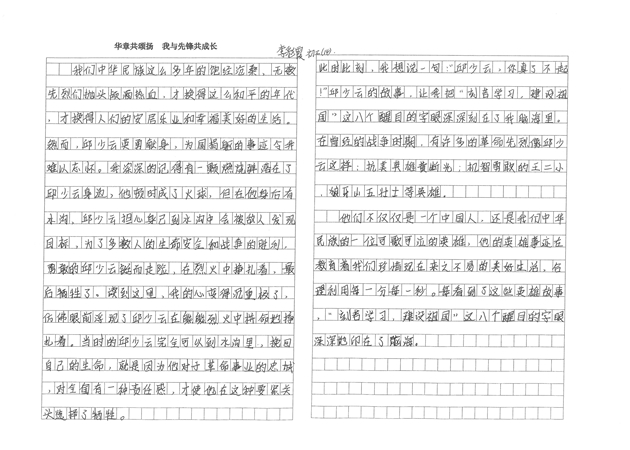 华章共颂扬 我与先锋共成长
初二(四)
我们中华民族这么多年的饱经沧桑,无数
先烈们抛头颅洒热血,才换得这么和平的年代
,才换得人们的安居乐业和幸福美好的生活。
然而,邱少云英勇献身,为国捐躯的事迹令我
难以忘怀。我深深的记得有一颗燃烧弹落在了
邱少云身边,他顿时成了火球,但在他身后有
水沟,邱少云担心自己到水沟中会被敌人发现
目标,为了多数人的生命安全和战争的胜利,
勇敢的邱少云挺而走险,在烈火中挣扎着,最
后牺牲了。读到这里,我的心变得沉重极了,
仿佛眼前浮现了邱少云在熊熊烈火中拼命地挣
扎着。当时的邱少云完全可以到水沟里,挽回
自己的生命,就是因为他对于革命事业的忠诚
,对全国有一种责任感,才使他在这种要紧关
头选择了牺牲。
此时此刻,我想说一句:“邱少云,你真了不起
!”邱少云的故事,让希把“刻苦学习,建设祖
国”这八个醒目的字眼深深刻在了我脑海里。
在曾经的战争时期,有许多的革命先烈像邱少
云这样:抗美英雄黄继光;机智勇敢的王二小
,狼牙山五壮士等英雄。
他们不仅仅是一个中国人,还是我们中华
民族的一位可歌可泣的英雄,他的英雄事迹在
教育着我们珍惜现在来之不易的美好生活,合
理利用每一分每一秒。每看到了这些英雄故事
,“刻苦学习,建设祖国”这八个醒目的字眼
深深地印在了脑海。